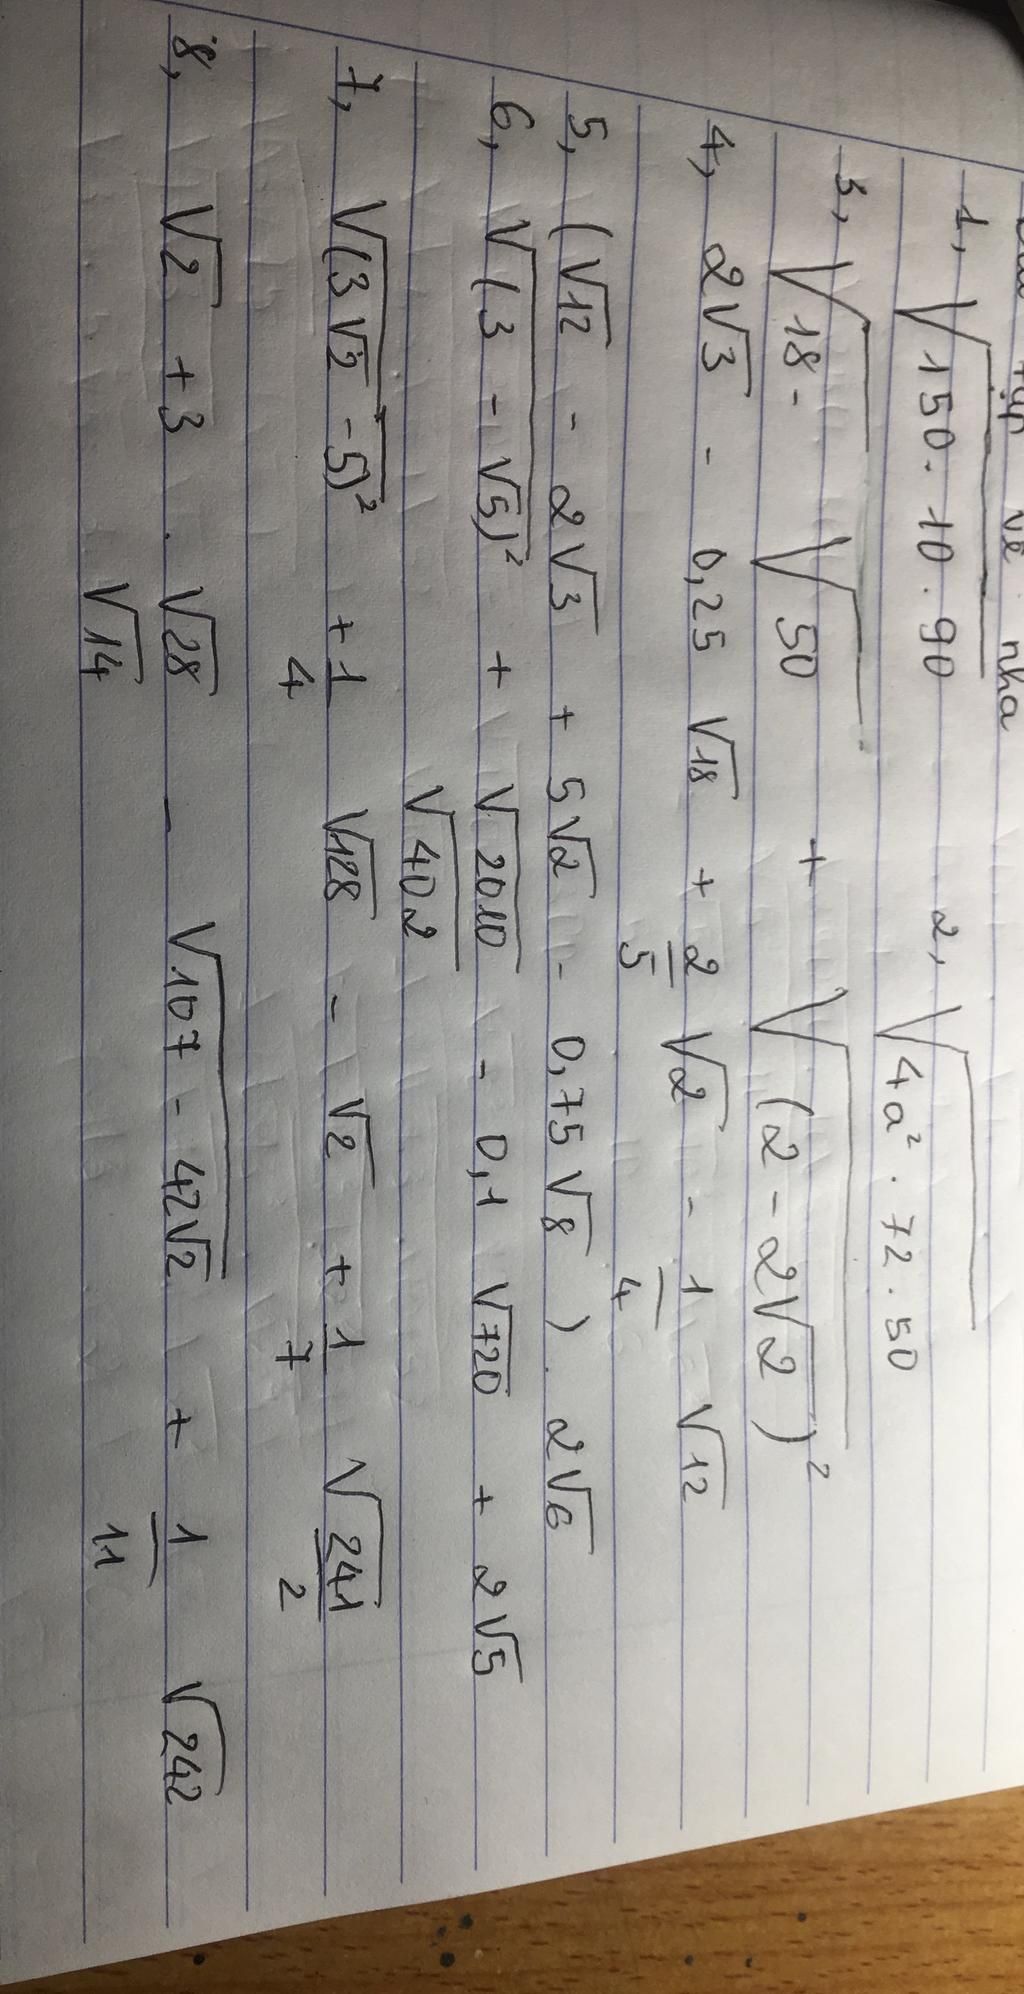 tập về nhà
1, √150.10.90 2, √4a².72.50
3, √18 - √50 + √(2-2√2)²
4, 2√3 - 0,25 √18 + 2/5 √2 - 1/4 √12
5, (√12 - 2√3 + 5√2 - 0,75√8). 2√6
6, √(3-√5)² + √2010/√402 - 0,1 √720 + 2√5
7, √(3√2-5)² + 1/4 √128 - √2 + 1/7 √241/2
8, √2 + 3 . √28/√14 - √107-42√2 + 1/11 √242